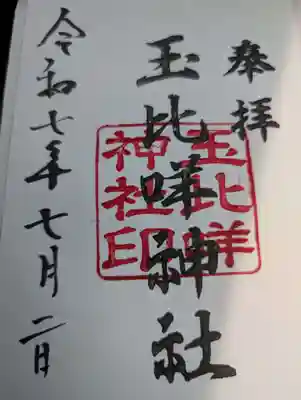 奉拝
玉比咩神社
玉比咩
神社印
令和七年七月二日